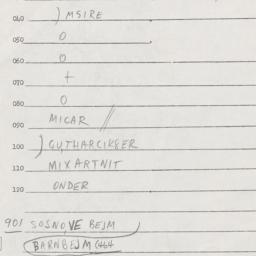 040 ) MSIRE
050 O
060 O
070 +
080 O
090 MICAR //
100 ) GUTHARCIK8ER
110 MIXARTNIT
120 ONDER
901 SOSNOVE BEJM
BARNBEJM 6464